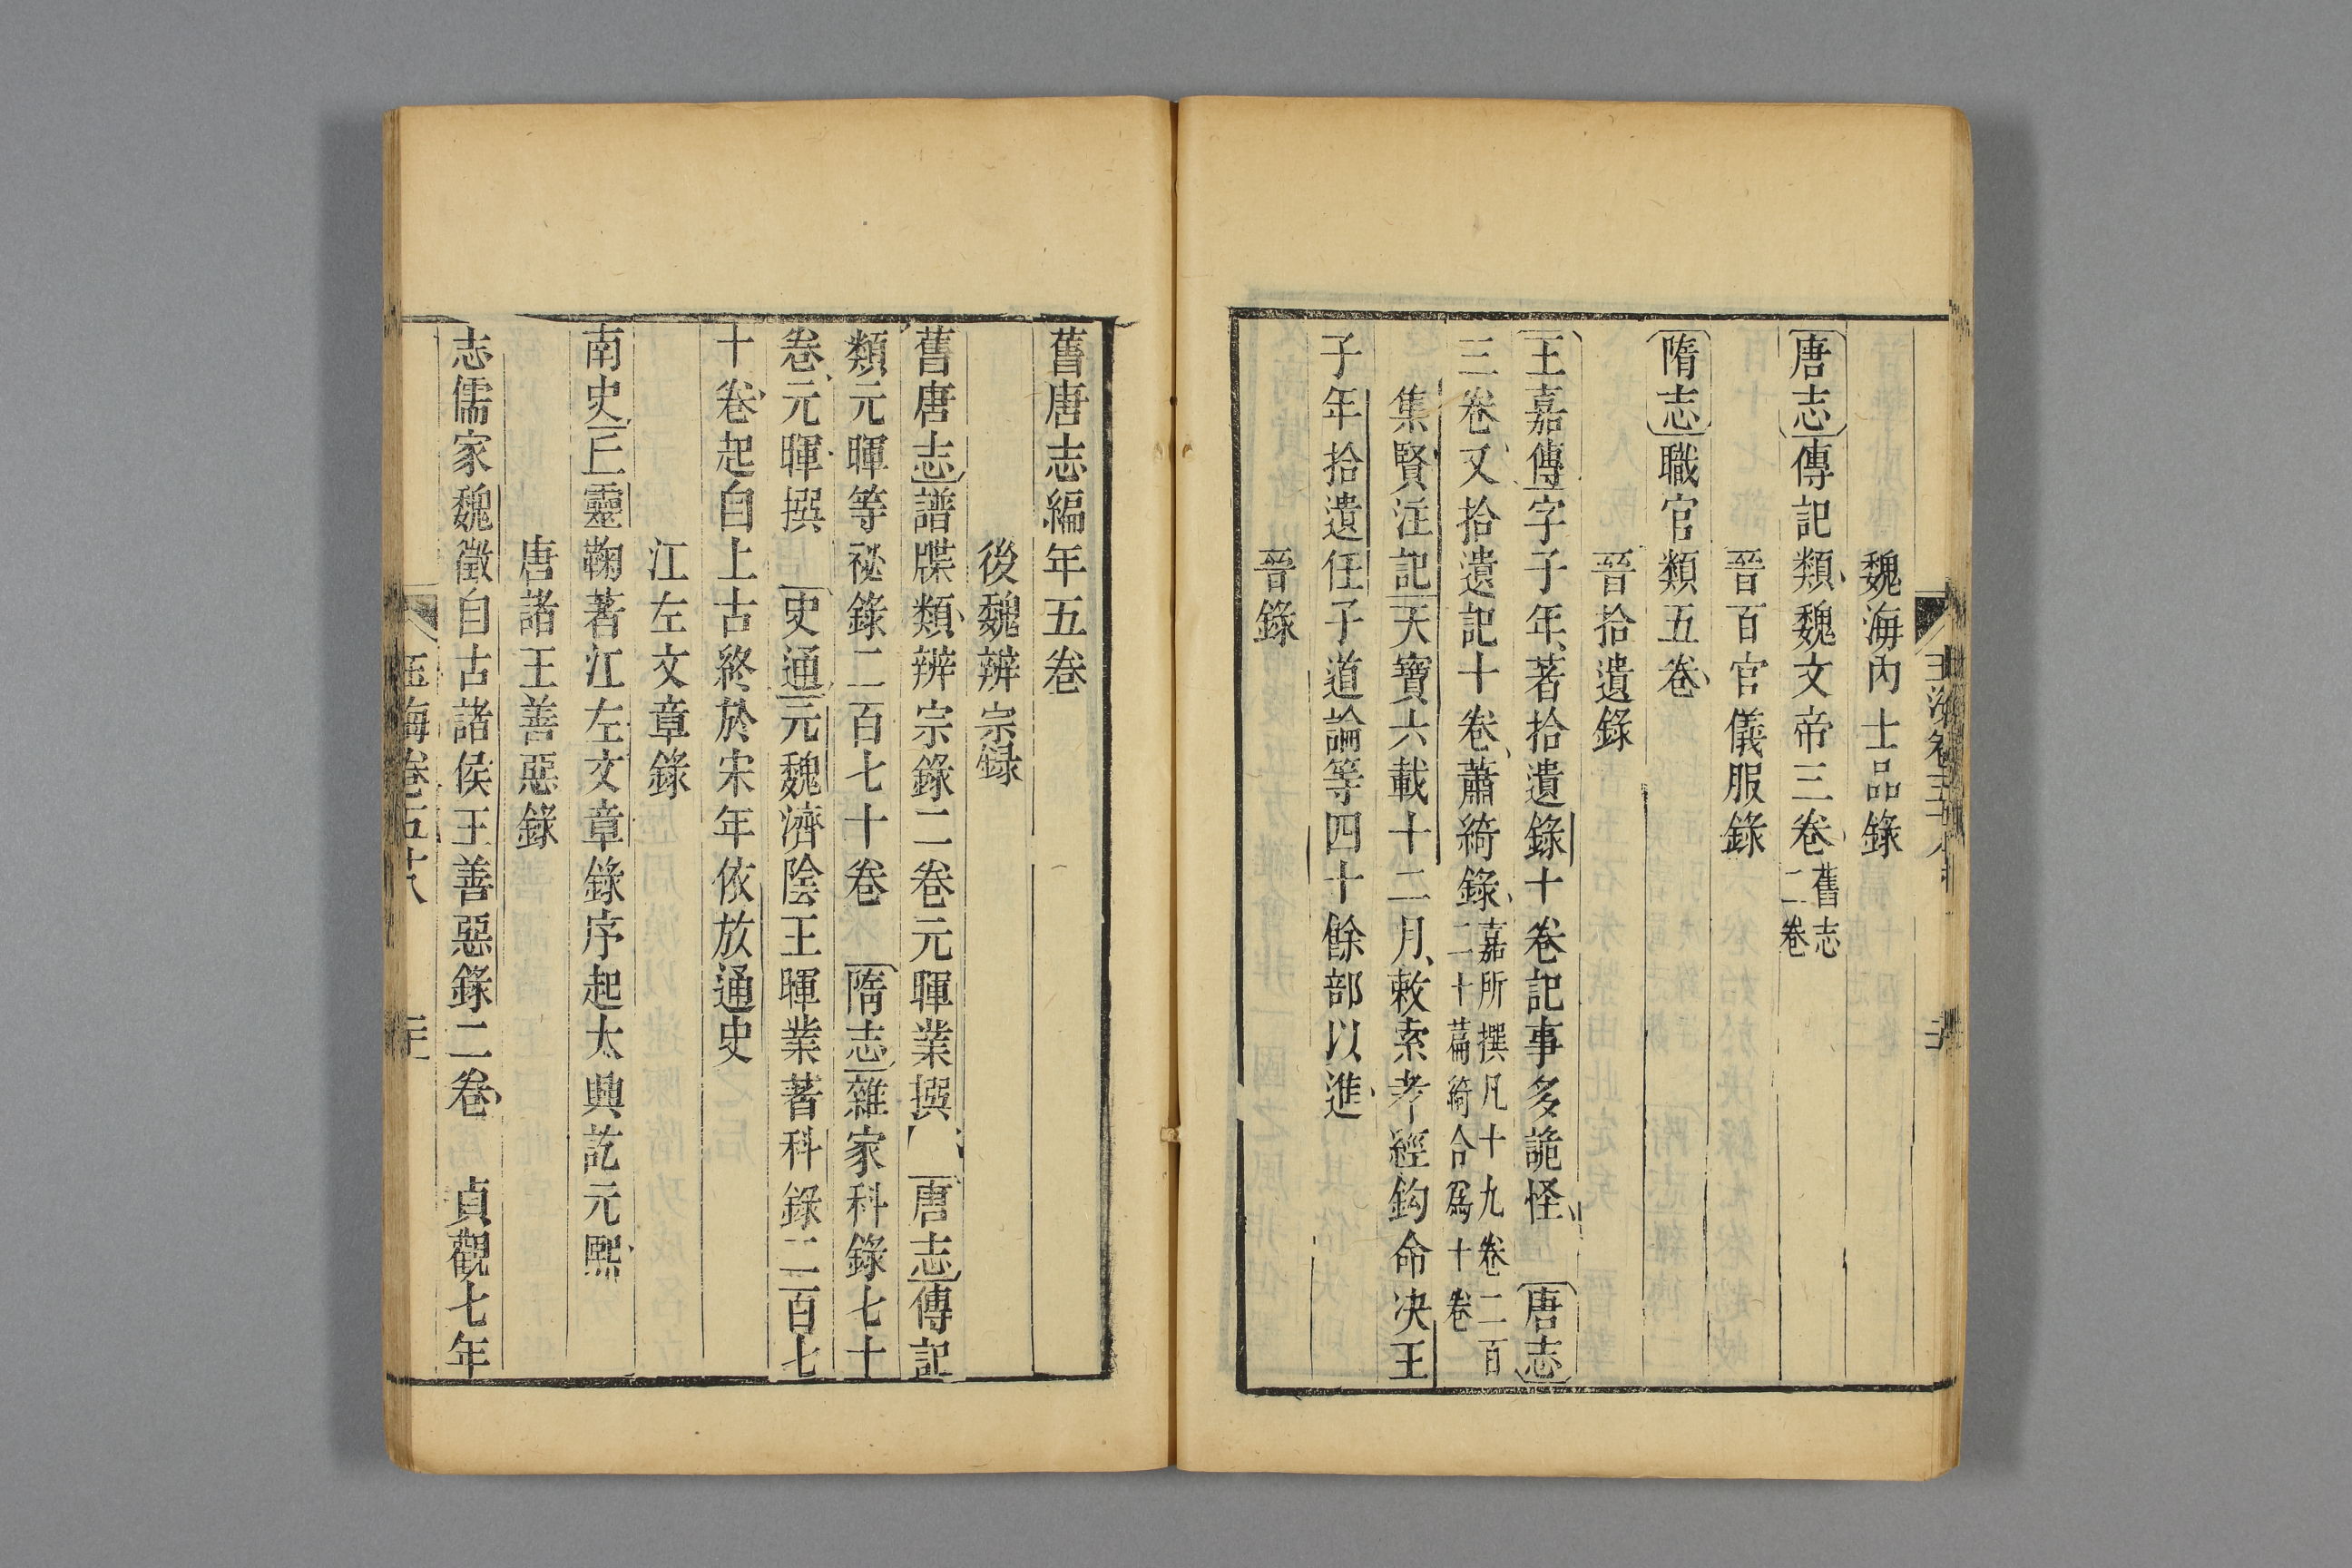 魏海內士品錄
唐志傳記類魏文帝三卷舊志二卷
晉百官儀服錄
隋志職官類五卷
晉拾遺錄
王嘉傳字子年著拾遺錄十卷記事多詭怪 唐志
三卷又拾遺記十卷蕭綺錄嘉所撰凡十九卷二百二十篇綺合爲十卷
集賢注記天寶六載十二月敕索孝經鈎命决王
子年拾遺任子道論等四十餘部以進
晉錄
舊唐志編年五卷
後魏辨宗録
舊唐志譜牒類辨宗錄二卷元暉業撰 唐志傳記
類元暉等祕錄二百七十卷 隋志雜家科錄七十
卷元暉撰 史通元魏濟陰王暉業著科錄二百七
十卷起自上古終於宋年依放通史
江左文章錄
南史丘靈鞠著江左文章錄序起太興訖元熙
唐諸王善惡錄
志儒家魏徵自古諸侯王善惡錄二卷 貞觀七年
玉海卷五十八